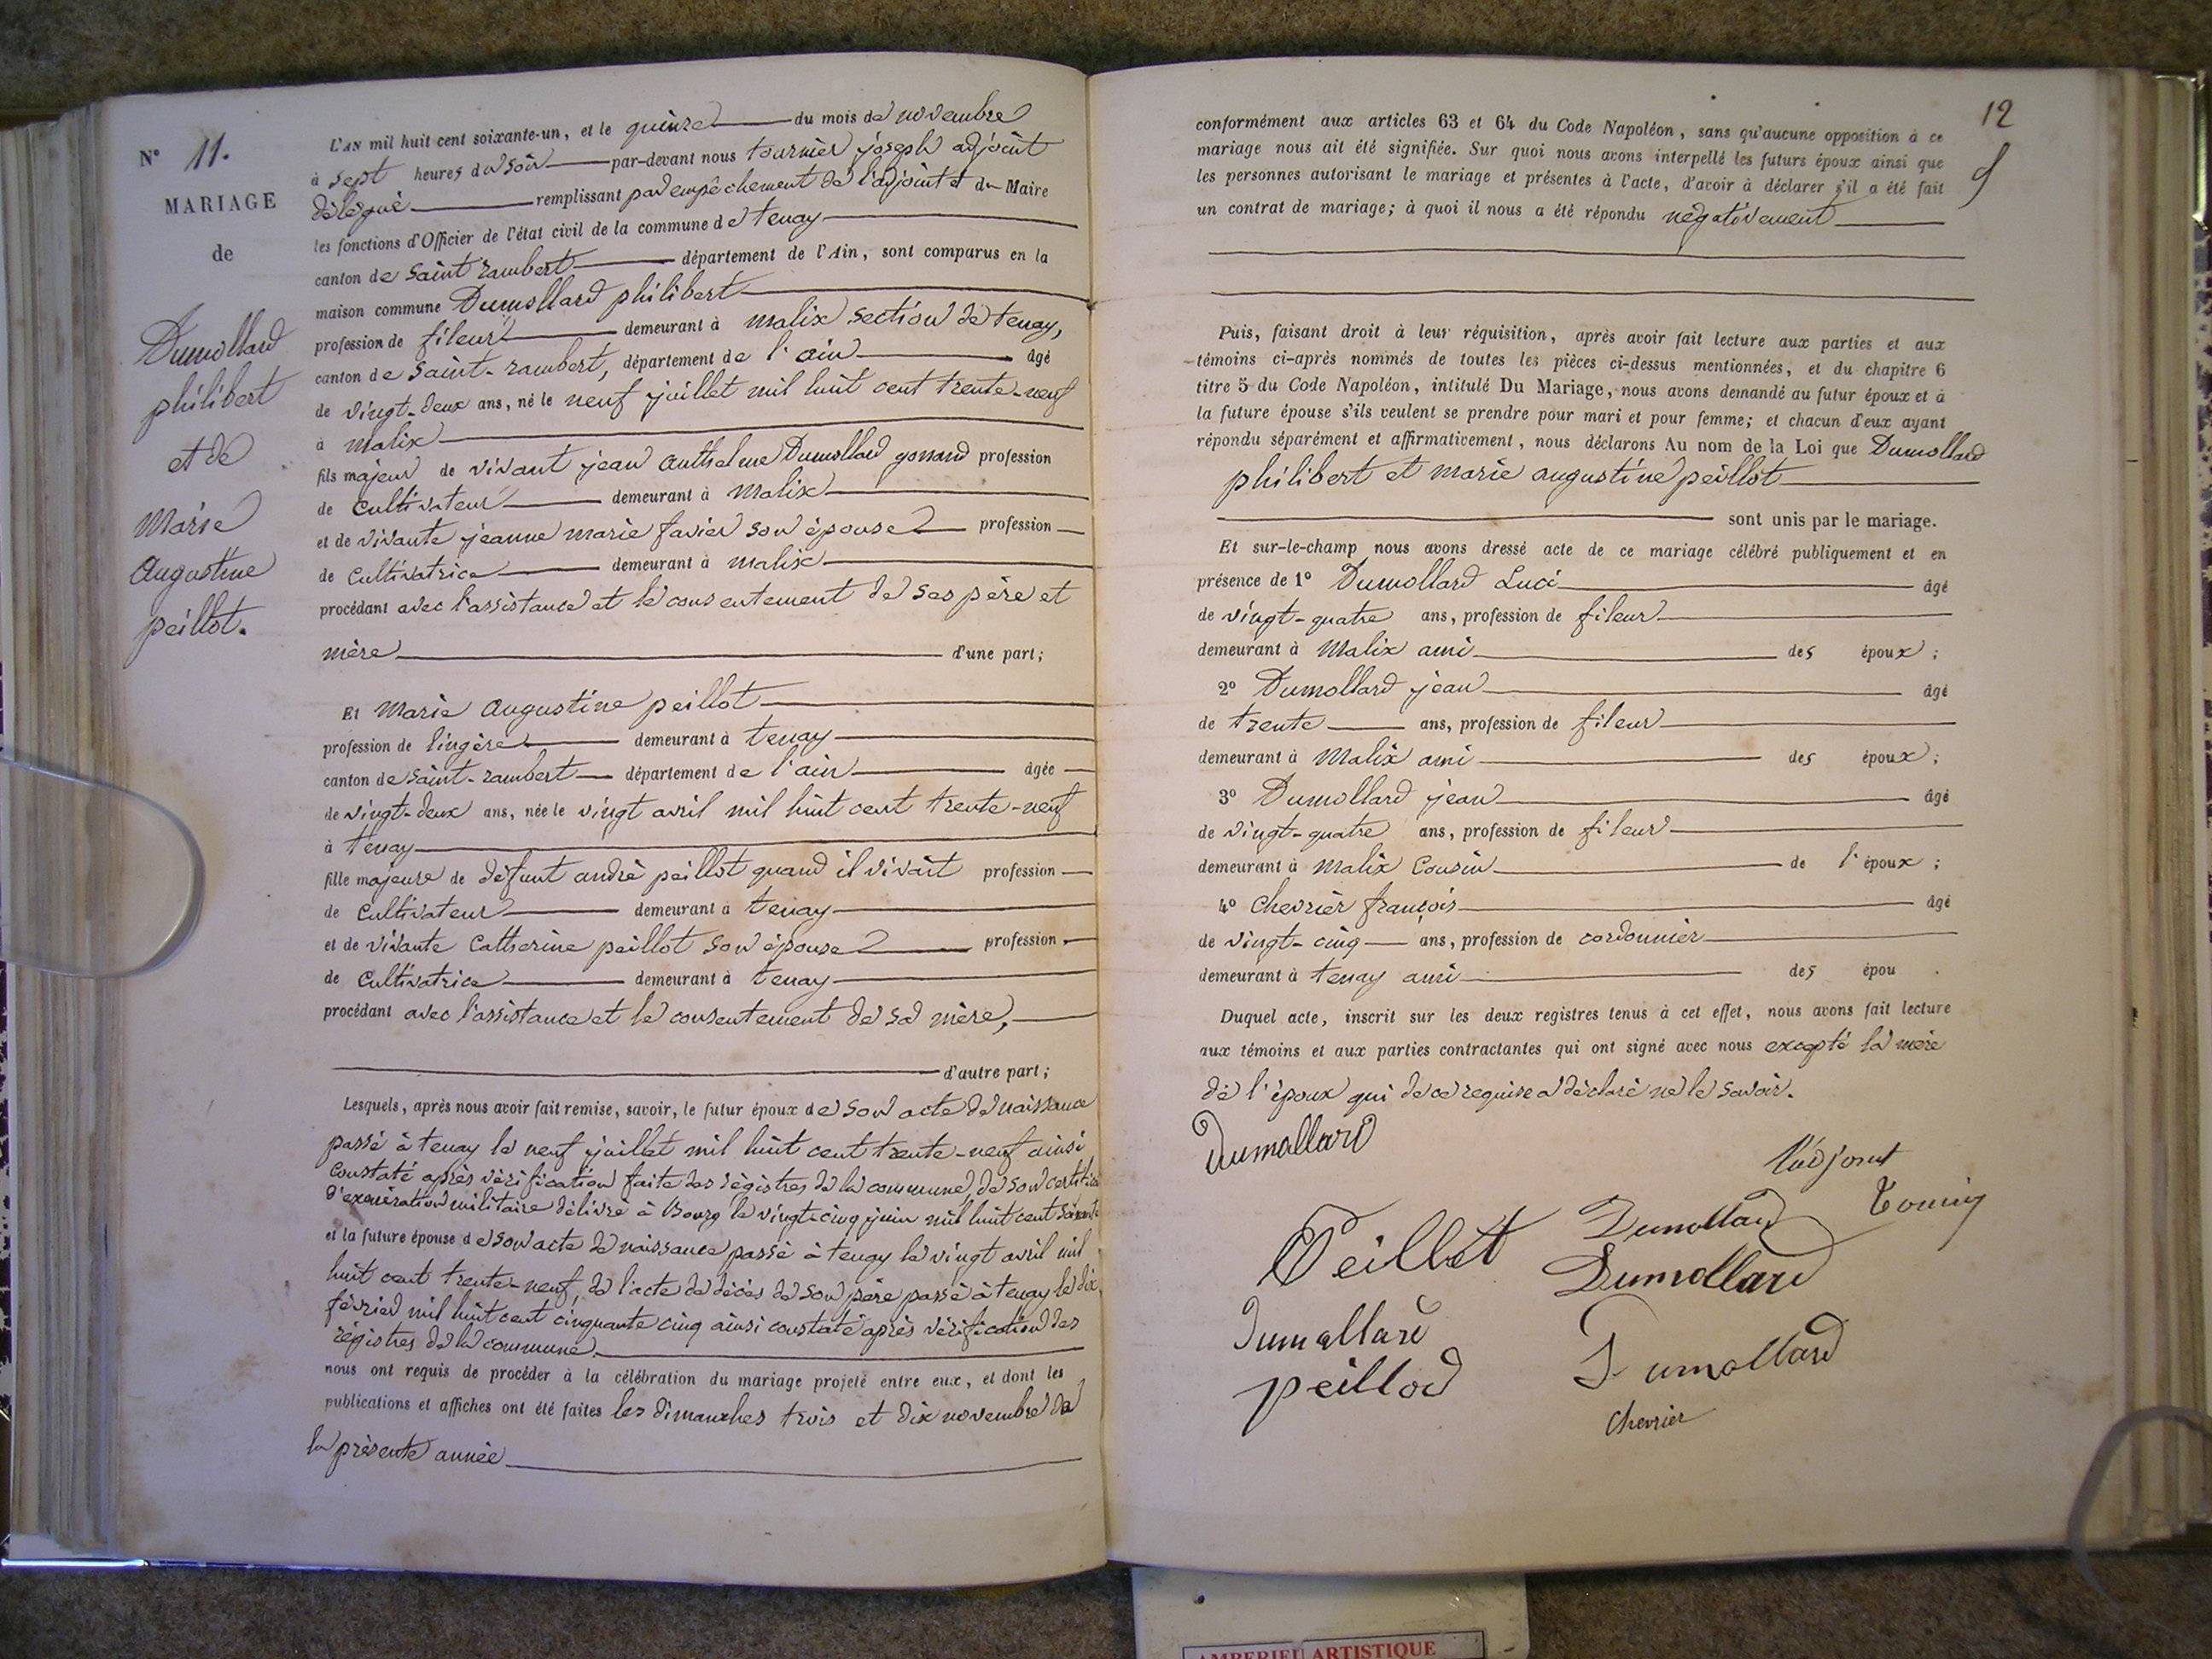 N° 11.
MARIAGE
de
Dumollard
philibert
et de
Marie
Augustine
peillot.
L'AN mil huit cent soixante-un, et le quinze du mois de novembre
à sept heures du soir par-devant nous tournier joseph adjoint
délégué remplissant par empêchement de l'adjoint et du Maire
les fonctions d'Officier de l'état civil de la commune de tenay
canton de saint rambert département de l'Ain, sont comparus en la
maison commune Dumollard philibert
profession de fileur demeurant à malix section de tenay,
canton de saint-rambert, département de l'ain âgé
de vingt-deux ans, né le neuf juillet mil huit cent trente-neuf
à malix
fils majeur de vivant jean anthelme Dumollard gonard profession
de cultivateur demeurant à malix
et de vivante jeanne marie favier son épouse profession
de cultivatrice demeurant à malix
procédant avec l'assistance et le consentement de ses père et
mère d'une part;
Et marie augustine peillot
profession de lingère demeurant à tenay
canton de saint-rambert département de l'ain âgée
de vingt-deux ans, née le vingt avril mil huit cent trente-neuf
à tenay
fille majeure de défunt andré peillot quand il vivait profession
de cultivateur demeurant à tenay
et de vivante Catherine peillot son épouse profession
de cultivatrice demeurant à tenay
procédant avec l'assistance et le consentement de sa mère,
d'autre part;
Lesquels, après nous avoir fait remise, savoir, le futur époux de son acte de naissance
passé à tenay le neuf juillet mil huit cent trente-neuf ainsi
constaté après vérification faite des régistres de la commune, de son certifica
d'exonération militaire délivré à Bourg le vingt-cinq juin mil huit cent soixante
et la future épouse de son acte de naissance passé à tenay le vingt avril mil
huit cent trente-neuf, de l'acte de décès de son père passé à tenay le dix
février mil huit cent cinquante cinq ainsi constaté après vérification des
régistres de la commune.
nous ont requis de procéder à la célébration du mariage projeté entre eux, et dont les
publications et affiches ont été faites les dimanches trois et dix novembre de
la présente année
12
conformément aux articles 63 et 64 du Code Napoléon, sans qu'aucune opposition à ce
mariage nous ait été signifiée. Sur quoi nous avons interpellé les futurs époux ainsi que
les personnes autorisant le mariage et présentes à l'acte, d'avoir à déclarer s'il a été fait
un contrat de mariage; à quoi il nous a été répondu négativement
Puis, faisant droit à leur réquisition, après avoir fait lecture aux parties et aux
témoins ci-après nommés de toutes les pièces ci-dessus mentionnées, et du chapitre 6
titre 5 du Code Napoléon, intitulé Du Mariage, nous avons demandé au futur époux et à
la future épouse s'ils veulent se prendre pour mari et pour femme; et chacun d'eux ayant
répondu séparément et affirmativement, nous déclarons Au nom de la Loi que Dumollard
philibert et marie augustine peillot
sont unis par le mariage.
Et sur-le-champ nous avons dressé acte de ce mariage célébré publiquement et en
présence de 1° Dumollard Luci âgé
de vingt-quatre ans, profession de fileur
demeurant à Malix ami des époux;
2° Dumollard jean âgé
de trente ans, profession de fileur
demeurant à Malix ami des époux;
3° Dumollard jean âgé
de vingt-quatre ans, profession de fileur
demeurant à malix Cousin de l'époux;
4° Chevrier françois âgé
de vingt-cinq ans, profession de cordonnier
demeurant à tenay ami des épou .
Duquel acte, inscrit sur les deux registres tenus à cet effet, nous avons fait lecture
aux témoins et aux parties contractantes qui ont signé avec nous excepté la mère
de l'époux qui de ce requise a déclaré ne le savoir.
Dumollard
L'adjoint
Peillot Dumollard
Dumollard
Dumollard
peillod Dumollard
Chevrier
AMBERIEU ARTISTIQUE